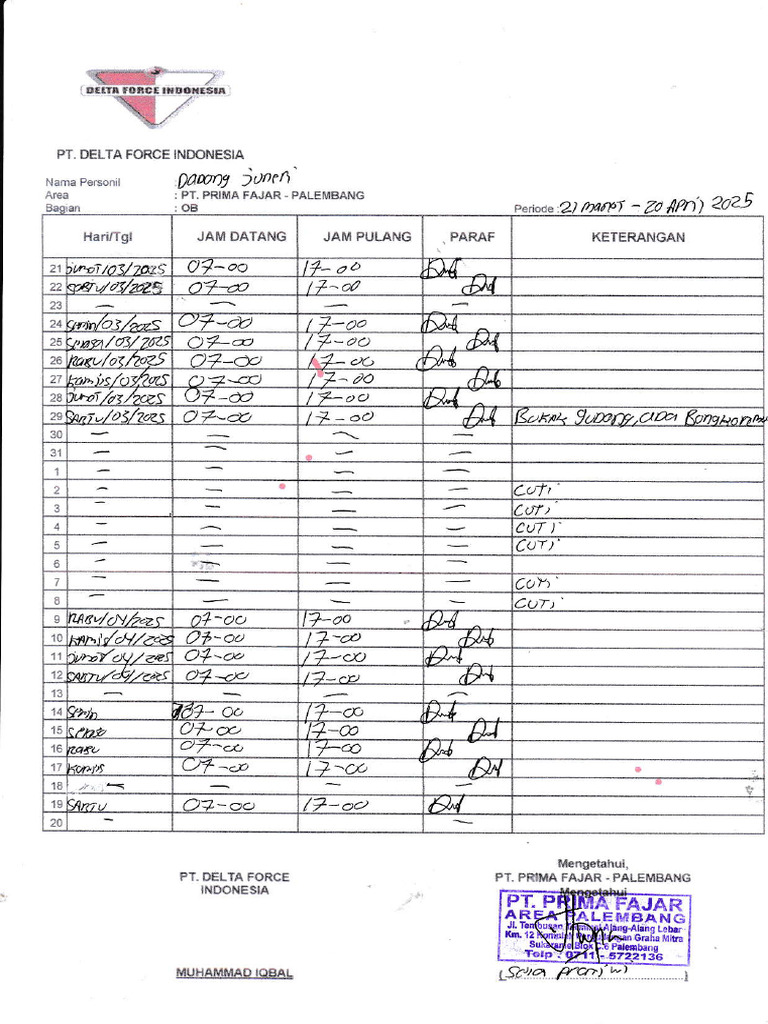 DELTA FORCE INDONESIA
PT. DELTA FORCE INDONESIA
Nama Personil : Dadang Juneri
Area : PT. PRIMA FAJAR - PALEMBANG
Bagian : OB Periode : 21 maret - 20 April 2025
Hari/Tgl JAM DATANG JAM PULANG PARAF KETERANGAN
21 Jumat/03/2025 07-00 17-00
22 SABTU/03/2025 07-00 17-00
23 — — — —
24 Senin/03/2025 07-00 17-00
25 Selasa/03/2025 07-00 17-00
26 RABU/03/2025 07-00 17-00
27 Kamis/03/2025 07-00 17-00
28 Jumat/03/2025 07-00 17-00
29 SABTU/03/2025 07-00 17-00 BUKAK gudang, ada
30 — — — —
31 — — — —
1 — — — —
2 — — — — CUTI
3 — — — — CUTI
4 — — — — CUTI
5 — — — — CUTI
6 — — — —
7 — — — — CUTI
8 — — — — CUTI
9 RABU/04/2025 07-00 17-00
10 KAMIS/04/2025 07-00 17-00
11 Jumat/04/2025 07-00 17-00
12 SABTU/04/2025 07-00 17-00
13 — — — —
14 Senin 07-00 17-00
15 Selasa 07-00 17-00
16 RABU 07-00 17-00
17 Kamis 07-00 17-00
18 — — — —
19 SABTU 07-00 17-00
20 — —
PT. DELTA FORCE
INDONESIA
MUHAMMAD IQBAL
Mengetahui,
PT. PRIMA FAJAR - PALEMBANG
Mengetahui
PT. PRIMA FAJAR
AREA PALEMBANG
Jl. Tembusan Terminal Alang-Alang Lebar
Km. 12 Komplek Pergudangan Graha Mitra
Sukarame Blok C.6 Palembang
Telp : 0711 - 5722136